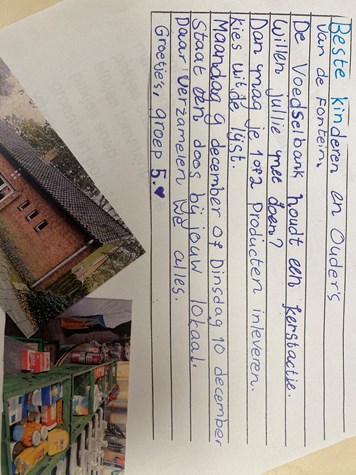 Beste kinderen en Ouders
van de Fontein,
De Voedselbank houdt een kerstactie.
willen jullie mee doen?
Dan mag je 1 of 2 Producten inleveren.
kies uit de lijst.
Maandag 9 december of Dinsdag 10 december
Staat een doos bij jouw lokaal.
Daar verzamelen we alles.
Groetjes, groep 5.♥